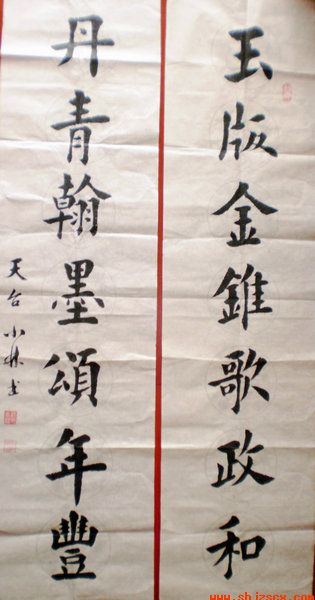 玉版金錐歌政和
丹青翰墨頌年豐
天台小林书
www.shjzscx.com